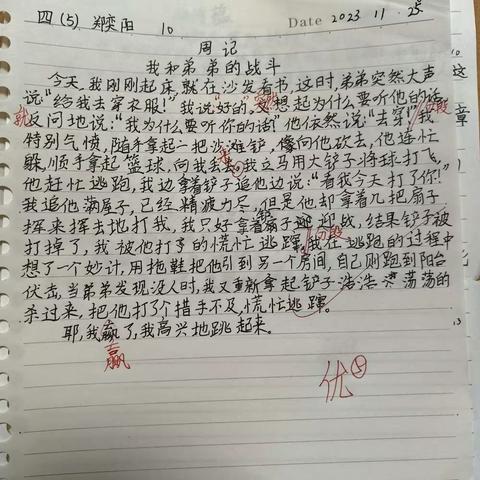 四(5) 郑奕阳 10 Date 2023 11. 25
周记
我和弟弟的战斗
今天,我刚刚起床,就在沙发看书,这时,弟弟突然大声
说:“给我去穿衣服!”我说“好的”,想起为什么要听他的话,
反问地说:“我为什么要听你的话!”他依然说:“去穿!”我
特别气愤,随手拿起一把沙滩铲,像向他砍去,他连忙
躲,顺手拿起篮球,向我丢,我立马用大铲子将球打飞,
他赶忙逃跑,我边拿着铲子追他边说:“看我今天打了你!”
我追他满屋子,已经精疲力尽,但是他却拿着几把扇子
挥来挥去地打我,我只好拿着扇子迎战,结果铲子被
打掉了,我被他打手的慌忙逃蹿,我在逃跑的过程中
想了一个妙计,用拖鞋把他引到另一个房间,自己则跑到阳台
伏击,当弟弟发现没人时,我又重新拿起铲子浩浩荡荡的
杀过来,把他打了个措手不及,慌忙逃蹿。
耶,我赢了,我高兴地跳起来。
赢
优
这
章